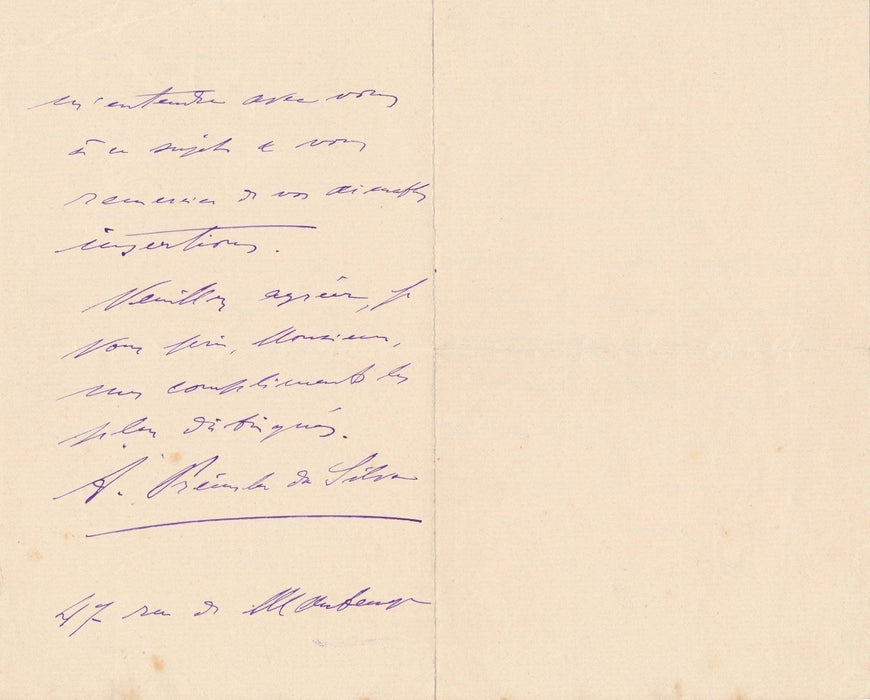 m'entendre avec vous
à ce sujet & vous
remercier de vos aimables
insertions.
Veuillez agréer, je
vous prie, Monsieur,
mes compliments les
plus distingués.
A. da Silva
47 rue de Maubeuge